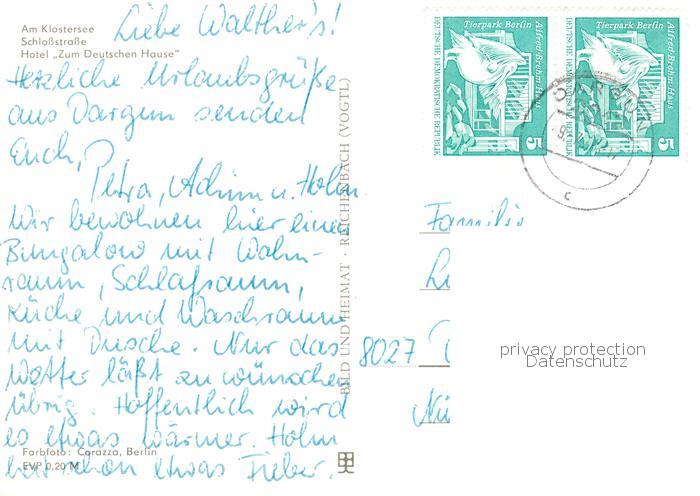 Am Klostersee
Schloßstraße
Hotel „Zum Deutschen Hause“
Liebe Walther's!
Herzliche Urlaubsgrüße
aus Dargun senden
Euch,
Petra, Achim u. Holm.
Wir bewohnen hier einen
Bungalow mit Wohn-
raum, Schlafraum,
Küche und Waschraum
mit Dusche. Nur das
Wetter läßt zu wünschen
übrig. Hoffentlich wird
es etwas wärmer. Holm
hat schon etwas Fieber.
Farbfoto: Corazza, Berlin
EVP 0,20 M
BILD UND HEIMAT · REICHENBACH (VOGTL)
Tierpark Berlin
Alfred-Brehm-Haus
DEUTSCHE DEMOKRATISCHE REPUBLIK
5
Tierpark Berlin
Alfred-Brehm-Haus
DEUTSCHE DEMOKRATISCHE REPUBLIK
5
DARGUN
c
Familie
8027
privacy protection
Datenschutz